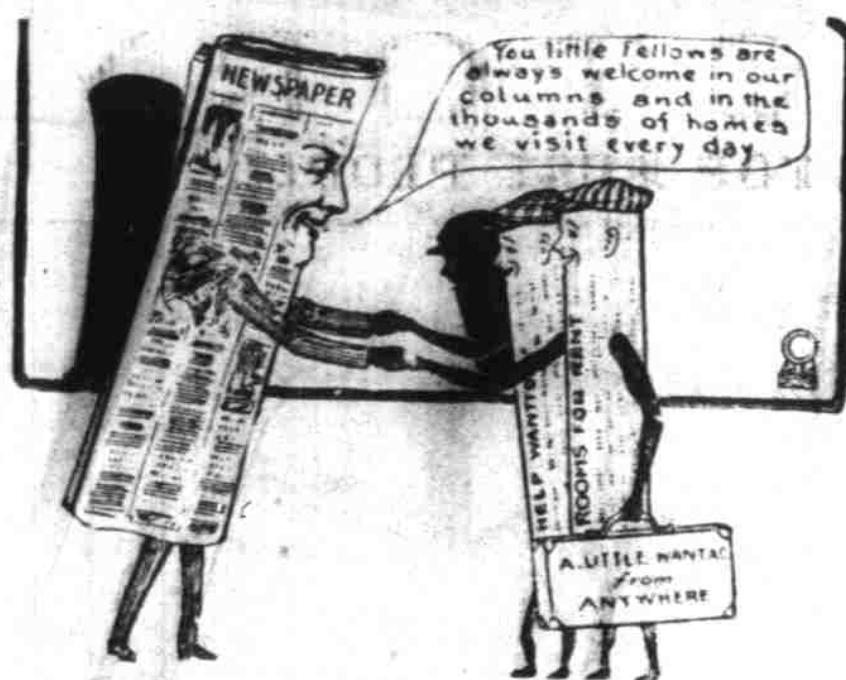 NEWSPAPER
You little Fellows are
always welcome in our
columns and in the
thousands of homes
we visit every day.
HELP WANTED
ROOMS FOR RENT
A. LITTLE WANTAD
from
ANYWHERE